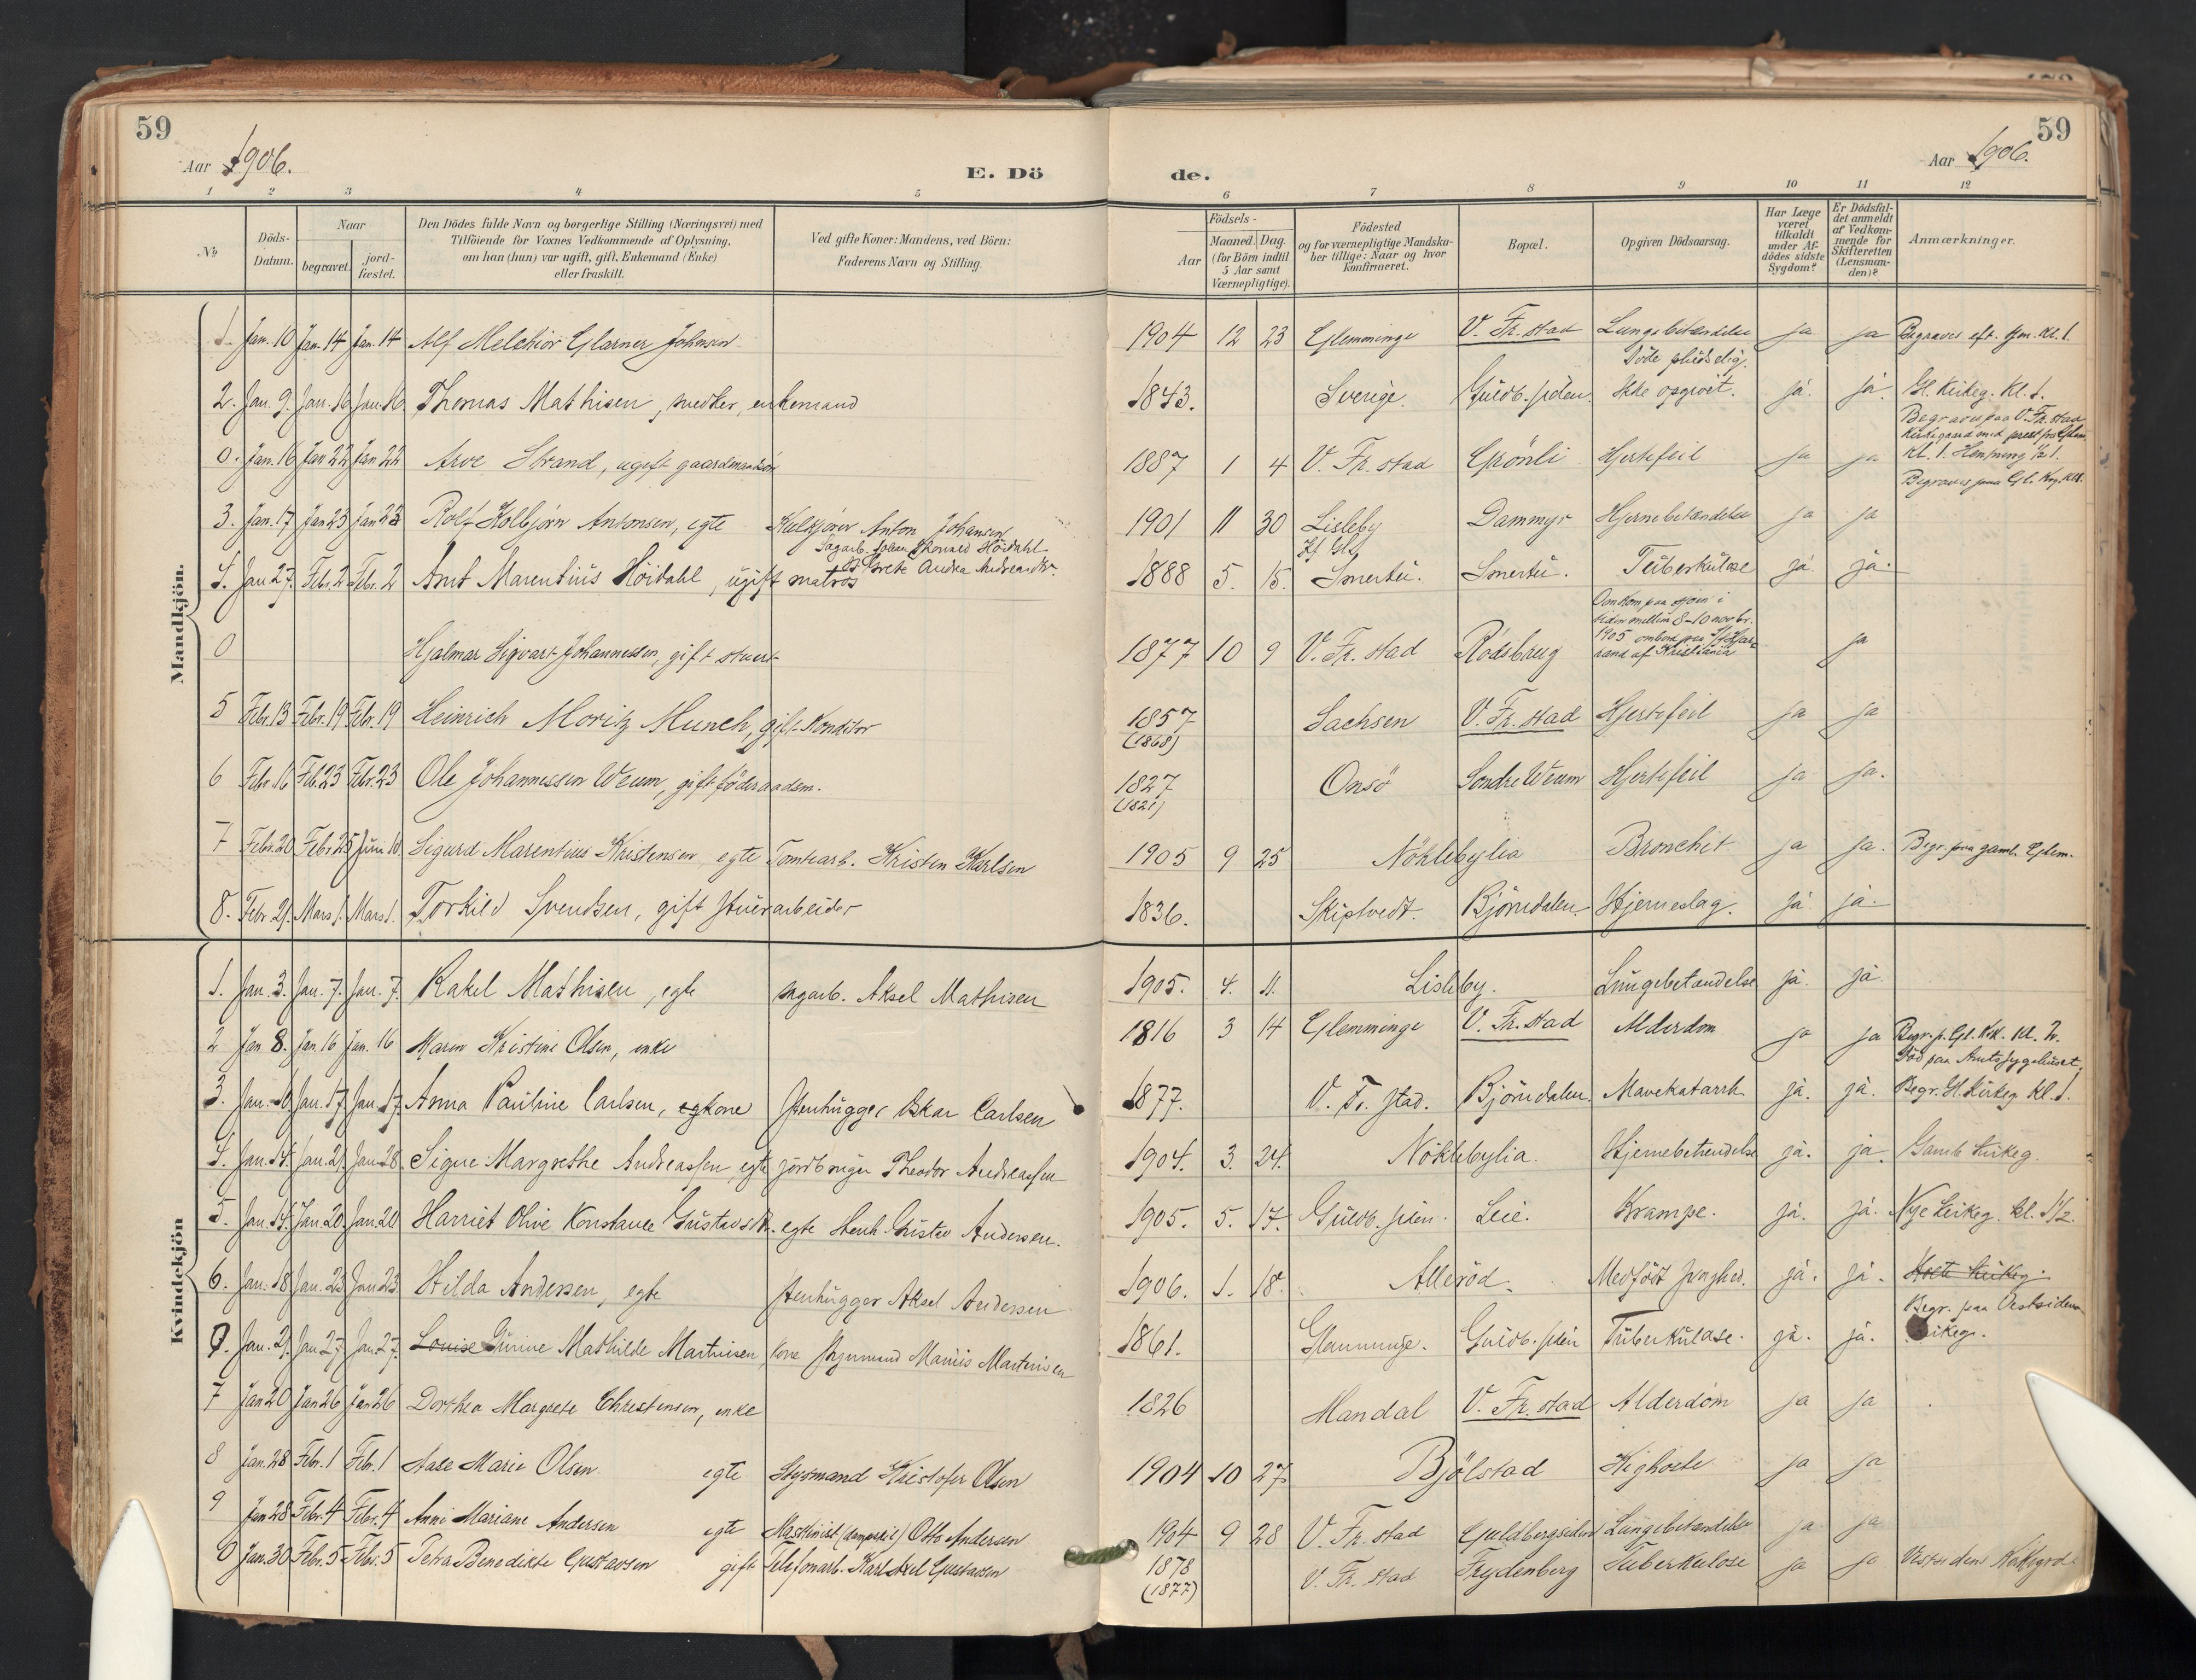 59
59
Aar 1906.
E. Dö
de.
Aar 1906.
1 2 3 4 5 6 7 8 9 10 11 12
No
Döds-Datum.
Naar
begravet.
jord-fæstet.
Den Dödes fulde Navn og borgerlige Stilling (Næringsvei) med
Tilföiende for Voxnes Vedkommende af Oplysning,
om han (hun) var ugift, gift, Enkemand (Enke)
eller fraskilt.
Ved gifte Koner: Mandens, ved Börn:
Faderens Navn og Stilling.
Födsels-
Aar
Maaned. Dag.
(for Börn indtil
5 Aar samt
Værnepligtige).
Födested
og for værnepligtige Mandska-
ber tillige: Naar og hvor
konfirmeret.
Bopæl.
Opgiven Dödsaarsag.
Har Læge
været
tilkaldt
under Af-
dödes sidste
Sygdom?
Er Dödsfal-
det anmeldt
af Vedkom-
mende for
Skifteretten
(Lensman-
den)?
Anmærkninger.
Mandkjön.
1. Jan. 10 Jan. 14 Jan. 14 Alf Melchior Glarner Johnsen 1904 12 23 Glemminge V. Fr. stad Lungebetændelse ja ja Begraves eft. Gm. Kl. 1.
2. Jan. 9. Jan. 16 Jan. 16 Thomas Mathisen, snedker, enkemand 1843. Sverige. Guldb. siden. Döde pludselig. Ikke opgivet. ja. ja. Gl. Kirkeg. Kl. 1.
0. Jan. 16 Jan 22 Jan 22 Arve Strand, ugift gaardmandssön 1887 1 4 V. Fr. stad Grönli Hjertefeil ja ja Begraves paa V. Fr. stad
Kirkegaard med prest fra Glem.
Kl. 1.
3. Jan. 17 Jan 23 Jan 23 Rolf Kolbjörn Antonsen, egte Kulkjörer Anton Johansen 1901 11 30 Lisleby Dammyr Hjernebetændelse ja ja Begraves paa Gl. Krg. Kl 1.
4. Jan 27. Febr. 2 Febr. 2 Arnt Marentius Höidahl, ugift matros Sagarb. Johan Thorvald Höidahl
Grete Andrea Andreasdtr. 1888 5. 15. Smertu. Smertu. Tuberkulose ja. ja.
0 Hjalmar Sigvart Johannessen, gift stuert 1877 10 9 V. Fr. stad Rödsbrug Omkom paa sjöen i
tiden mellem 8-10 novbr.
1905 ombord paa
rand af Kristiania ja
5 Febr. 13 Febr. 19 Febr. 19 Heinrich Moritz Munch, gift Konditor 1857
(1868) Sachsen V. Fr. stad Hjertefeil ja ja
6 Febr 16 Feb. 23 Febr. 23 Ole Johannessen Weum, gift föderaadsm. 1827
(1821) Onsö Söndre Weum Hjertefeil ja ja.
7 Febr. 20 Febr 25 Juni 10 Sigurd Marentius Kristensen, egte Tomtearb. Kristen Karlsen 1905 9 25 Nöklebylia Bronchit ja ja. Begr. paa gamle Glem.
8. Febr. 21. Mars 1. Mars 1. Torkild Svendsen, gift stuerarbeider 1836. Skiptvedt. Björndalen. Hjerneslag. ja. ja.
Kvindekjön
1. Jan. 3. Jan. 7. Jan. 7. Rakel Mathisen, egte sagarb. Aksel Mathisen 1905. 4. 11. Lisleby. Lungebetændelse ja. ja.
2 Jan 8. Jan. 16 Jan. 16 Maren Kristine Olsen, enke 1816 3 14 Glemminge V. Fr. stad Alderdom ja ja Begr. p. Gl. Krk. Kl. 2.
Död paa Amtssygehuset.
3. Jan. 16 Jan. 17. Jan. 17. Anna Pauline Carlsen, kone Stenhugger Oskar Carlsen 1877. V. Fr. stad. Björndalen. Mavekatarrh ja. ja. Begr. Gl. Kirkeg. Kl. 1.
4. Jan. 14. Jan. 21. Jan 28 Signe Margrethe Andreassen, egte jordbruger Theodor Andreassen 1904. 3. 24. Nöklebylia. Hjernebetændelse ja. ja. Gamle Kirkeg.
5. Jan. 14. Jan. 20. Jan. 20 Harriet Olive Konstance Gustavsdtr. egte Stenh. Gustav Andersen. 1905. 5. 17. Guldb. siden. Leie. Krampe. ja. ja. Nye Kirkeg. Kl. 1 1/2.
6. Jan. 18 Jan. 23 Jan 23 Hilda Andersen, egte Stenhugger Aksel Andersen 1906. 1. 18. Alleröd. Medfödt svaghed. ja. ja. Kirkeg.
0. Jan. 21. Jan 27. Jan. 27. Louise Gurine Mathilde Martinsen kone Styrmand Marius Martinsen 1861. Glemminge. Guldb. siden Tuberkulose. ja. ja. Begr. paa Vestsidens
Kirkeg.
7 Jan 20 Jan 26 Jan 26 Dorthea Margrete Christensen, enke 1826 Mandal V. Fr. stad Alderdom ja ja
8 Jan. 28 Febr. 1 Febr. 1 Aase Marie Olsen egte Styrmand Kristofer Olsen 1904 10 27 Bjölstad Kighoste ja ja
9 Jan 28 Febr. 4 Febr. 4 Anni Mariane Andersen egte Maskinist (dampskib) Otto Andersen 1904 9 28 V. Fr. stad Guldbergsiden Lungebetændelse ja ja
0 Jan. 30 Febr. 5 Febr. 5 Petra Benedikte Gustavsen gift Telefonarb. Karl Axel Gustavsen 1878
(1877) V. Fr. stad Frydenberg Tuberkulose ja ja Vestsidens Kirkegrd.